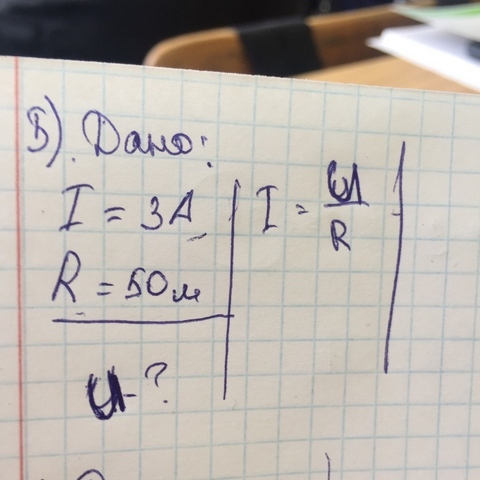 Б). Дано:
I = 3А
R = 5Ом
U - ?
I = U/R